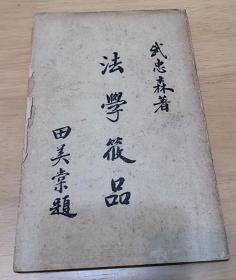 武忠森著
法學筱品
田美棠題